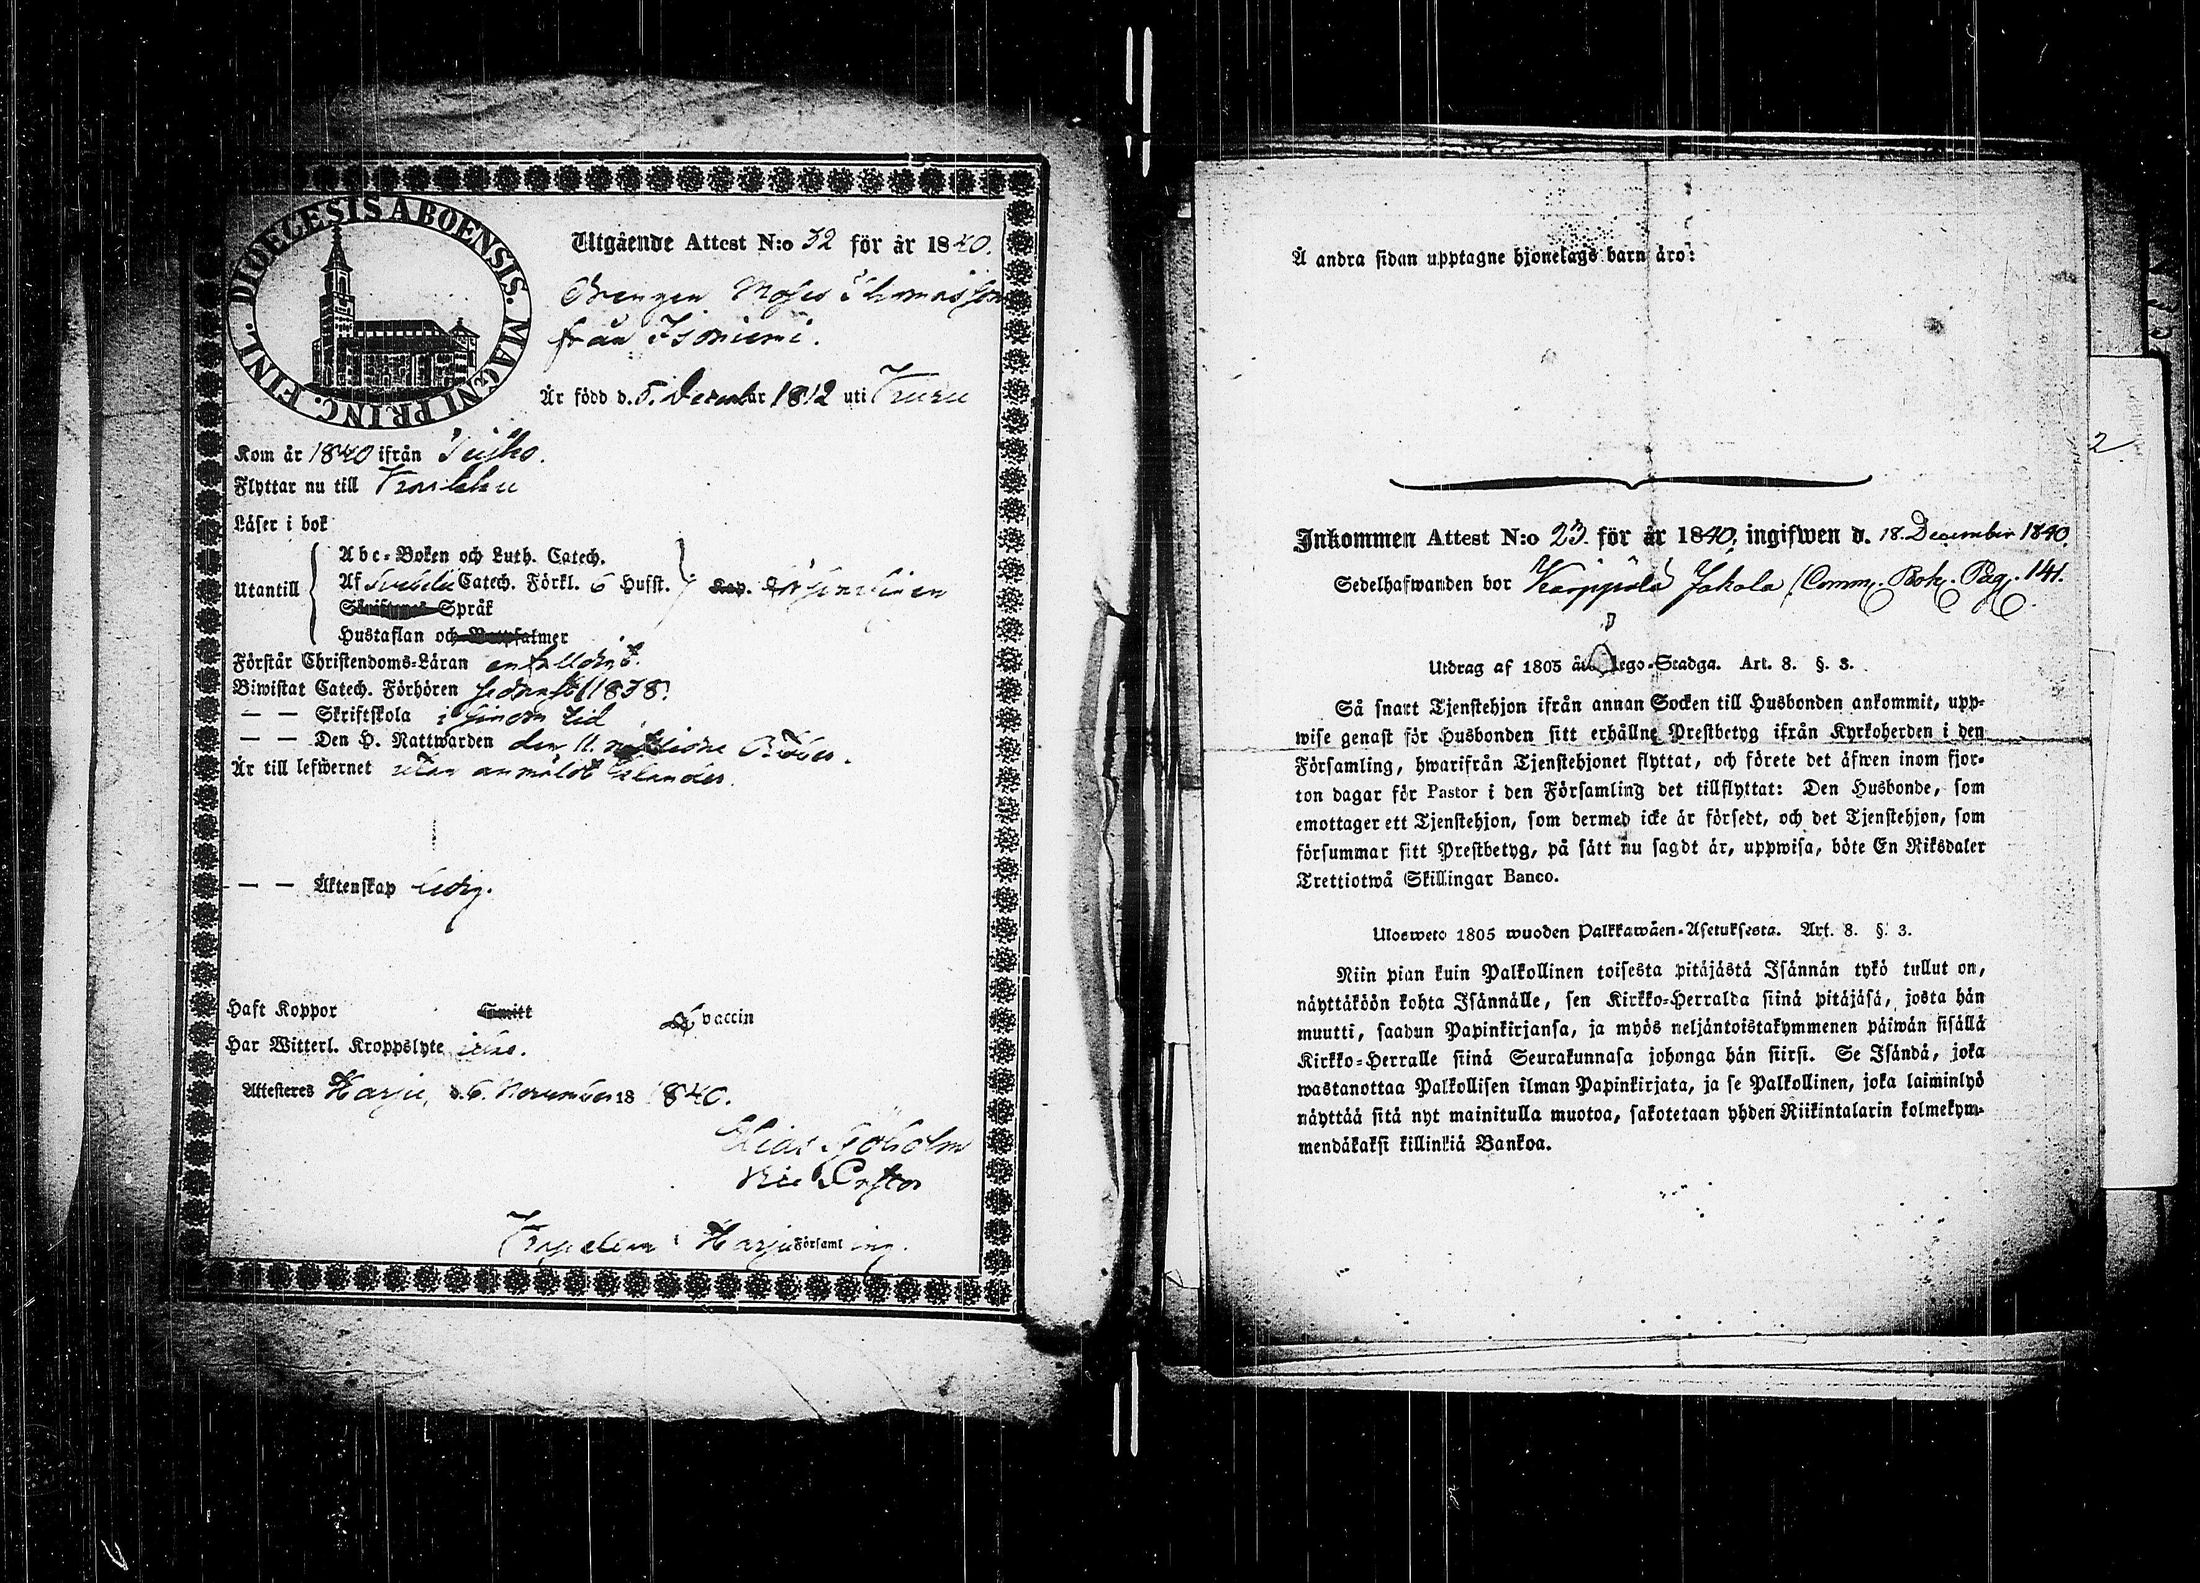 DIOECESIS ABOENSIS. MAGNI PRINC. FINL.
Utgående Attest N:o 32 för år 1840.
Drengen Moses Thomasson
från Isoniemi.
Är född d. 5. December 1812 uti
Kom år 1840 ifrån
Flyttar nu till
Läser i bok
Abc-Boken och Luth. Catech.
Utantill Af Svebelii Catech. Förkl. 6 Hufst. Kap.
Språk
Hustaflan och Botpsalmer
Förstår Christendoms-Läran enfalldigt.
Biwistat Catech. Förhören sednast 1838.
— — Skriftskola i sinom tid
— — Den H. Nattwarden den 11.
Är till lefwernet utan anmäldt klander.
— — Äktenskap ledig.
Haft Koppor Smitt vaccin
Har Witterl. Kroppslyte
Attesteres Harju, d. 6. November 18 1840.
Elias Sjöholm
Vice Pastor
i Harju Församling.
Å andra sidan upptagne hjonelags barn äro:
Inkommen Attest N:o 23. för år 1840, ingifwen d. 18. December 1840.
Sedelhafwanden bor Jakola (Comm. Bok. Pag. 141.
Utdrag af 1805 års Lego-Stadga. Art. 8. §. 3.
Så snart Tjenstehjon ifrån annan Socken till Husbonden ankommit, upp-
wise genast för Husbonden sitt erhållne Prestbetyg ifrån Kyrkoherden i den
Församling, hwarifrån Tjenstehjonet flyttat, och förete det äfwen inom fjor-
ton dagar för Pastor i den Församling det tillflyttat: Den Husbonde, som
emottager ett Tjenstehjon, som dermed icke är försedt, och det Tjenstehjon, som
försummar sitt Prestbetyg, på sätt nu sagdt är, uppwisa, böte En Riksdaler
Trettiotwå Skillingar Banco.
Ulosweto 1805 wuoden Palkkawäen-Asetuksesta. Art. 8. §. 3.
Niin pian kuin Palkollinen toisesta pitäjästä Isännän tykö tullut on,
näyttäköön kohta Isännälle, sen Kirkko-Herralda siinä pitäjäsä, josta hän
muutti, saadun Papinkirjansa, ja myös neljäntoistakymmenen päiwän sisällä
Kirkko-Herralle siinä Seurakunnasa johonga hän siirsi. Se Isändä, joka
wastanottaa Palkollisen ilman Papinkirjata, ja se Palkollinen, joka laiminlyö
näyttää sitä nyt mainitulla muotoa, sakotetaan yhden Riikintalarin kolmekym-
mendäkaksi killinkiä Bankoa.
2